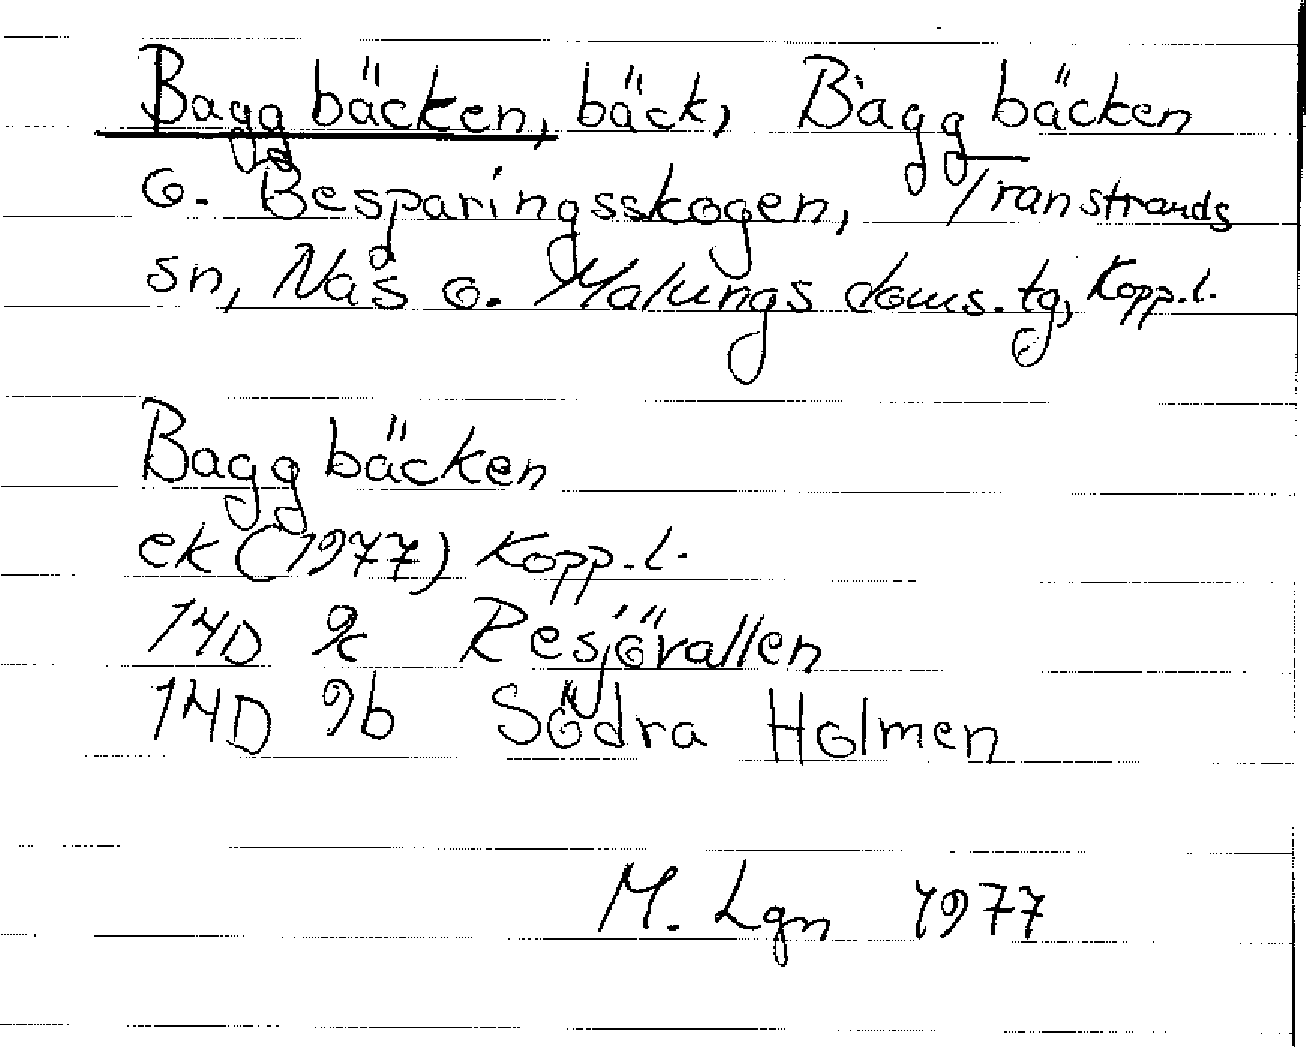 Baggbäcken, bäck, Baggbäcken
o. Besparingsskogen, Transtrands
sn, Nås o. Malungs doms. tg, Kopp. l.
Baggbäcken
ek (1977) Kopp. l.
14D 9c Resjövallen
14D 9b Södra Holmen
M. Lgn 1977